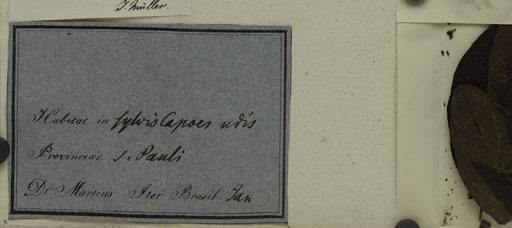 J. Müller.
Habitat in sylvis Capoes udis
Provinciae S. Pauli
Dr Martius Iter Brasil. Jan